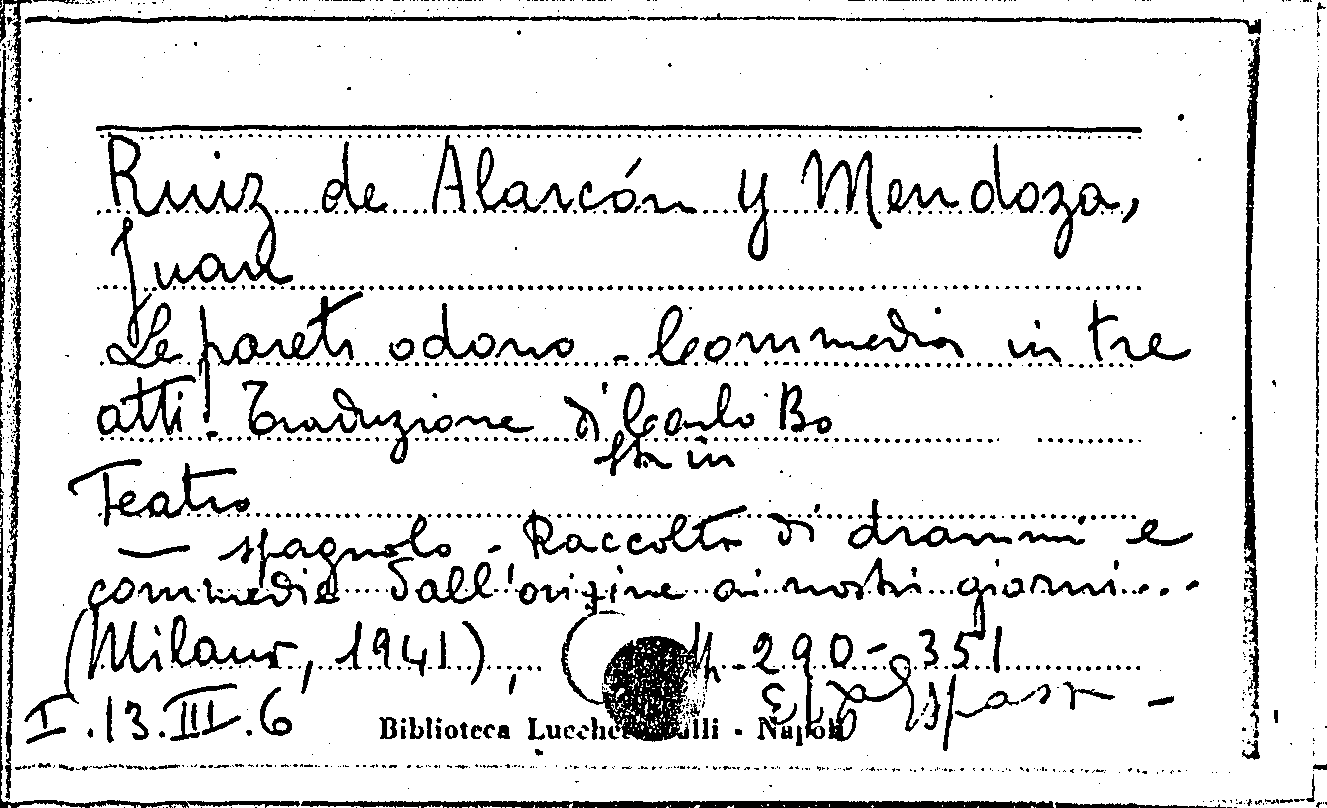 Ruiz de Alarcón y Mendoza,
Juan
Le pareti odono - Commedia in tre
atti. Traduzione di Carlo Bo
in
Teatro
— spagnolo - Raccolta di drammi e
commedie dall'origine ai nostri giorni...
(Milano, 1941), pp. 290-351
I.13.III.6
Biblioteca Lucchesi Palli - Napoli